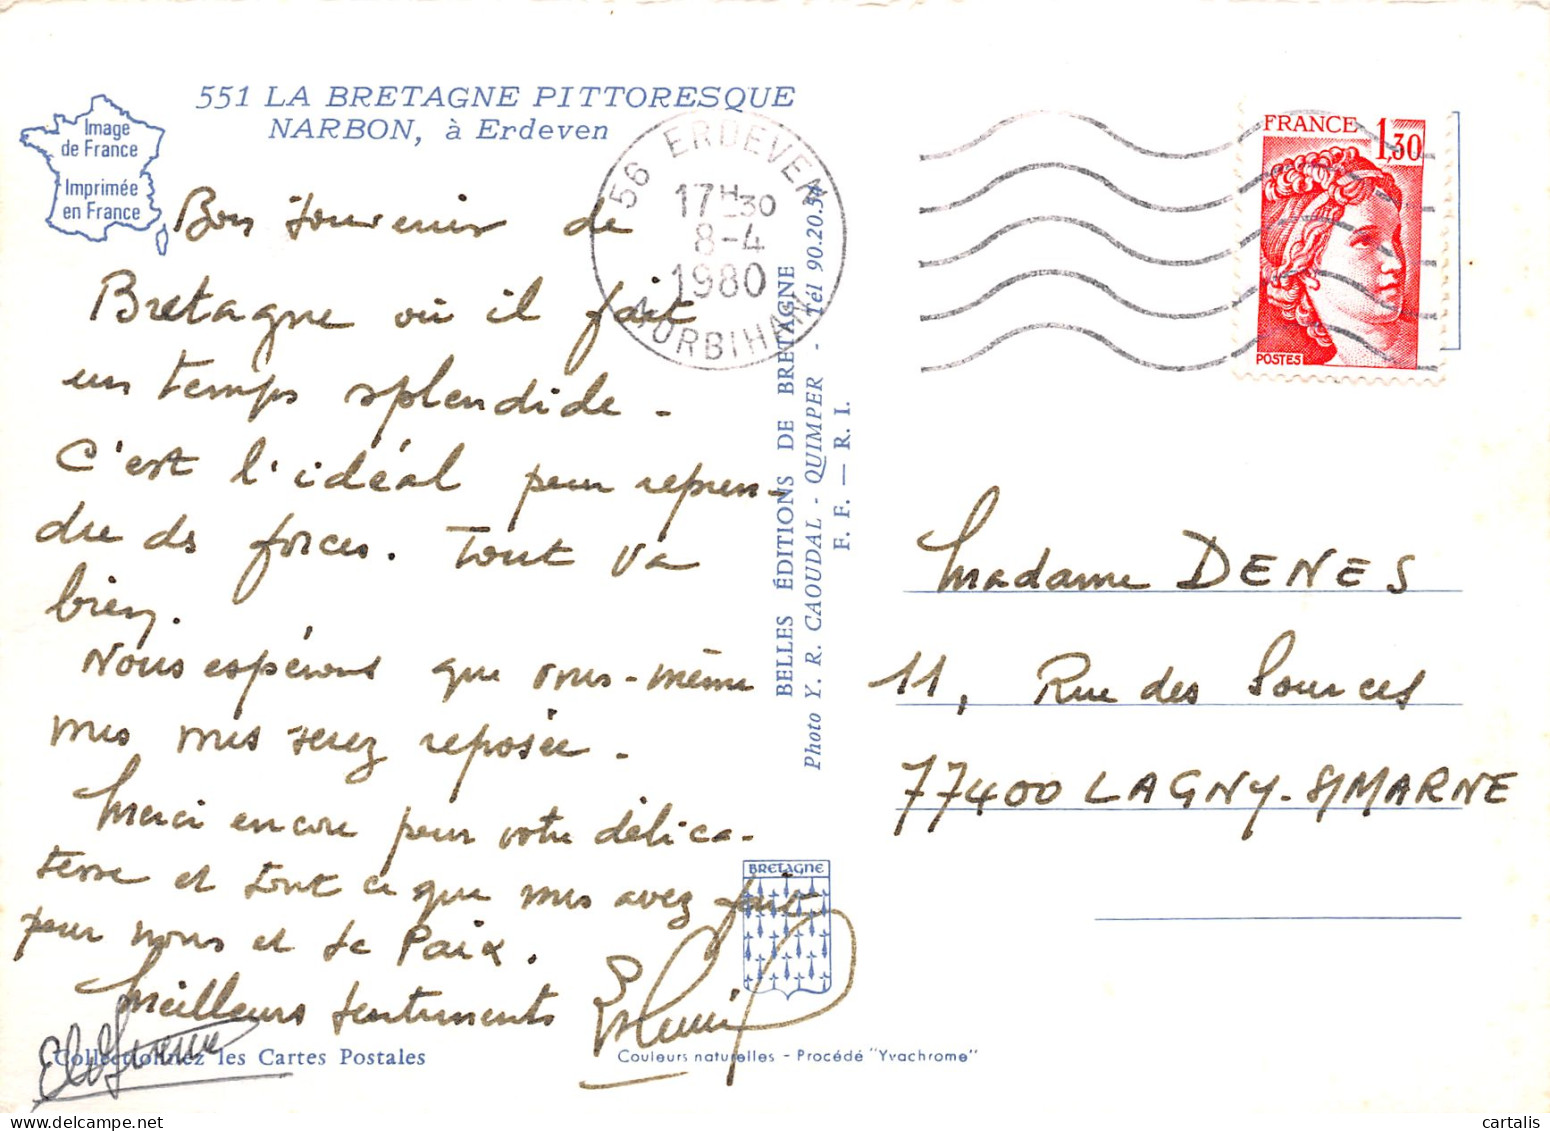 551 LA BRETAGNE PITTORESQUE
NARBON, à Erdeven
Image
de France
Imprimée
en France
56 ERDEVEN
17H30
8-4
1980
MORBIHAN
FRANCE 1,30
POSTES
Bon souvenir de
Bretagne où il fait
un temps splendide.
C'est l'idéal pour repren-
dre des forces. Tout va
bien.
Nous espérons que vous-même
vous serez reposée.
Merci encore pour votre délica-
tesse et tout ce que vous avez fait
pour nous et Paix.
Meilleurs sentiments
BELLES ÉDITIONS DE BRETAGNE
Photo Y. R. CAOUDAL - QUIMPER - Tél 90.20.54
F. F. — R. I.
Madame DENES
11, Rue des Sources
77400 LAGNY-S/MARNE
BRETAGNE
Collectionnez les Cartes Postales
Couleurs naturelles - Procédé "Yvachrome"
cartalis